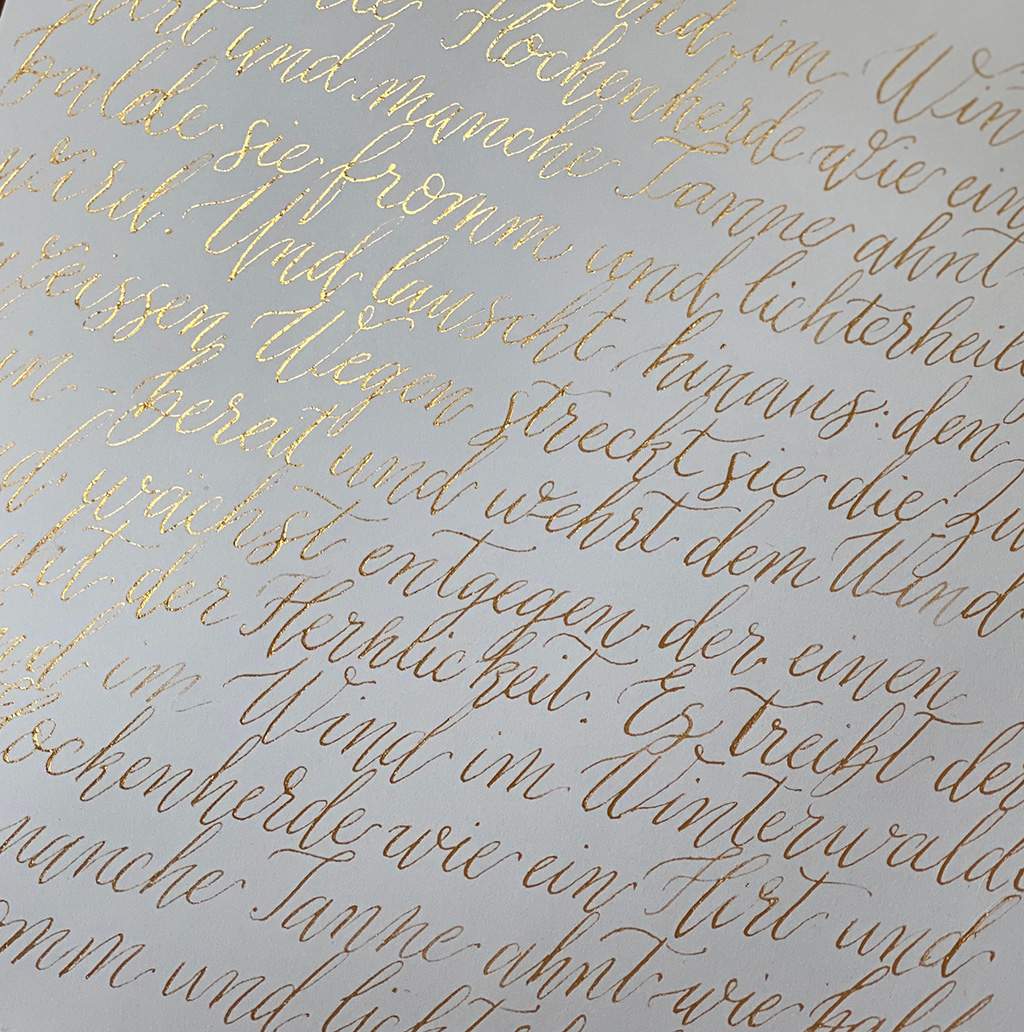 ind im Win
die Flockenherde wie ein
irt und manche Tanne ahnt
balde sie fromm und lichterheil
wird. Und lauscht hinaus: den
weissen Wegen streckt sie die Zw
in - bereit und wehrt dem Wind
nd wächst entgegen der einen
cht der Herrlichkeit. Es treibt der
nd im Wind im Winterwalde
lockenherde wie ein Hirt und
manche Tanne ahnt wie bal
omm und lichte